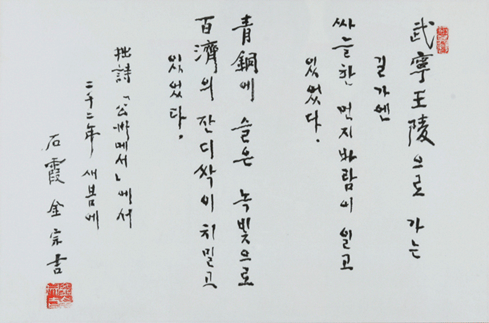 武寧王陵으로 가는
길가엔
싸늘한 먼지바람이 일고
있었다.
靑銅에 슬은 녹빛으로
百濟의 잔디싹이 치밀고
있었다.
拙詩「公州에서」에서
二千二年 새봄에
石霞 金宗吉